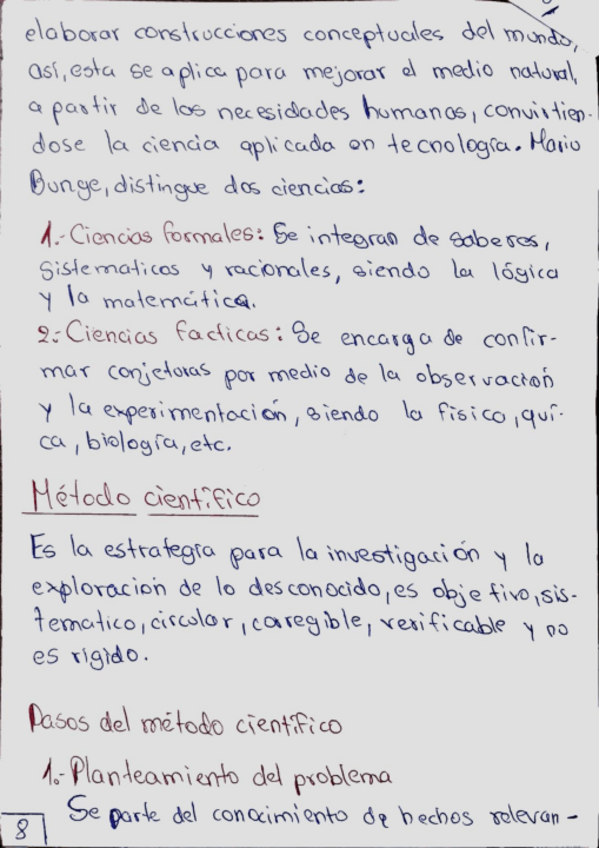 elaborar construcciones conceptuales del mundo,
así, esta se aplica para mejorar el medio natural,
a partir de las necesidades humanas, convirtien-
dose la ciencia aplicada en tecnología. Mario
Bunge, distingue dos ciencias:
1.- Ciencias formales: Se integran de saberes,
sistematicos y racionales, siendo la lógica
y la matemática.
2.- Ciencias facticas: Se encarga de confir-
mar conjeturas por medio de la observación
y la experimentación, siendo la física, quí-
ca, biología, etc.
Método científico
Es la estrategia para la investigación y la
exploración de lo desconocido, es objetivo, sis-
tematico, circular, corregible, verificable y no
es rígido.
Pasos del método científico
1.- Planteamiento del problema
Se parte del conocimiento de hechos relevan-
8